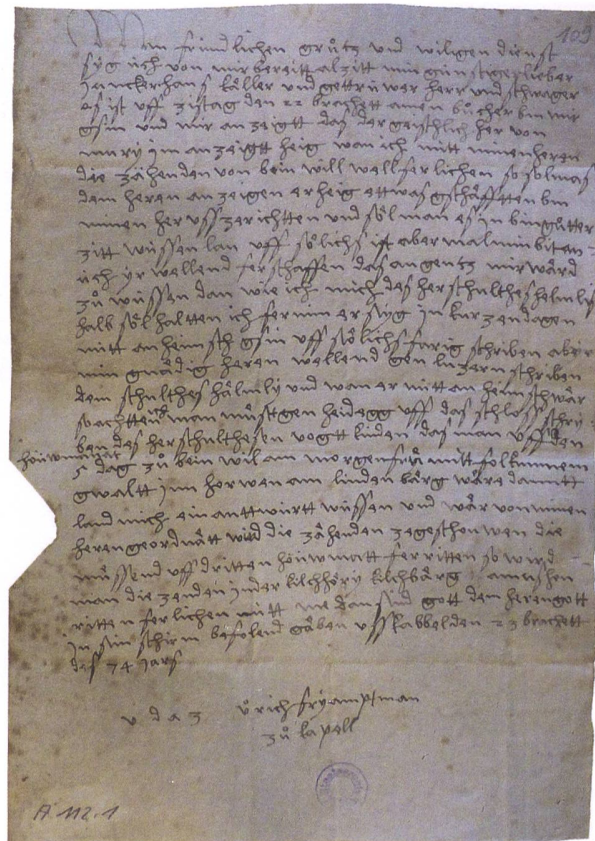 109
Min früntlichen grůtz und wiligen dienst
syg üch von mir bereitt alzitt min günstiger lieber
Junckerhans käller und gettrüwer herr und schwager
es ist uff zistag den 22 brachett amen bůcher bim mir
gsin und mir an zeigtt das der geischlich her von
mury im an zeigtt heig wan ich mitt minen heren
die zächenden von bein will well ferlichen so sol mas
dem heren an zeigen er heig ettwas gschäfftten bin
minen her uss zerichtten und söl man es in bin gutter
zitt wüssen lan uff sölichs ist aber mal min bitten
üch yr wellend ferschaffen das an gentz mir wärd
zů wüssen dan wie ich mich des her schulthes helmlis
halb söl haltten ich fernim er syg in kurzen dagen
nitt an heimsch gsin uff sölichs farig schriben aber
min gnädig heren wellend gen luzern schriben
dem schulthes hälmly und wan er nitt an heimsch wär
so achtten man möcht gen heidegg uff das schloss schry
ben des her schulthesen vogtt linden das man uff den
höüwmonat
5 dag zů bein wil am morgen frü mitt folkumnem
gwaltt im horwen am linden bärg wäre damitt
land mich ein anttwurtt wüssen und wär von minen
heren geordnätt wird die zächenden zegeschouwen die
müssend uff dritten höüwmatt ferritten so wird
man die zenden in der kilchhöry kilchbärg
ritten ferlichen nütt me dan sind gott dem heren gott
in sin schirm befolend gäben uss kabbel den 23 brachett
des 74 jars
v d a z ůrich fry amptman
zů kapell
A 112.1